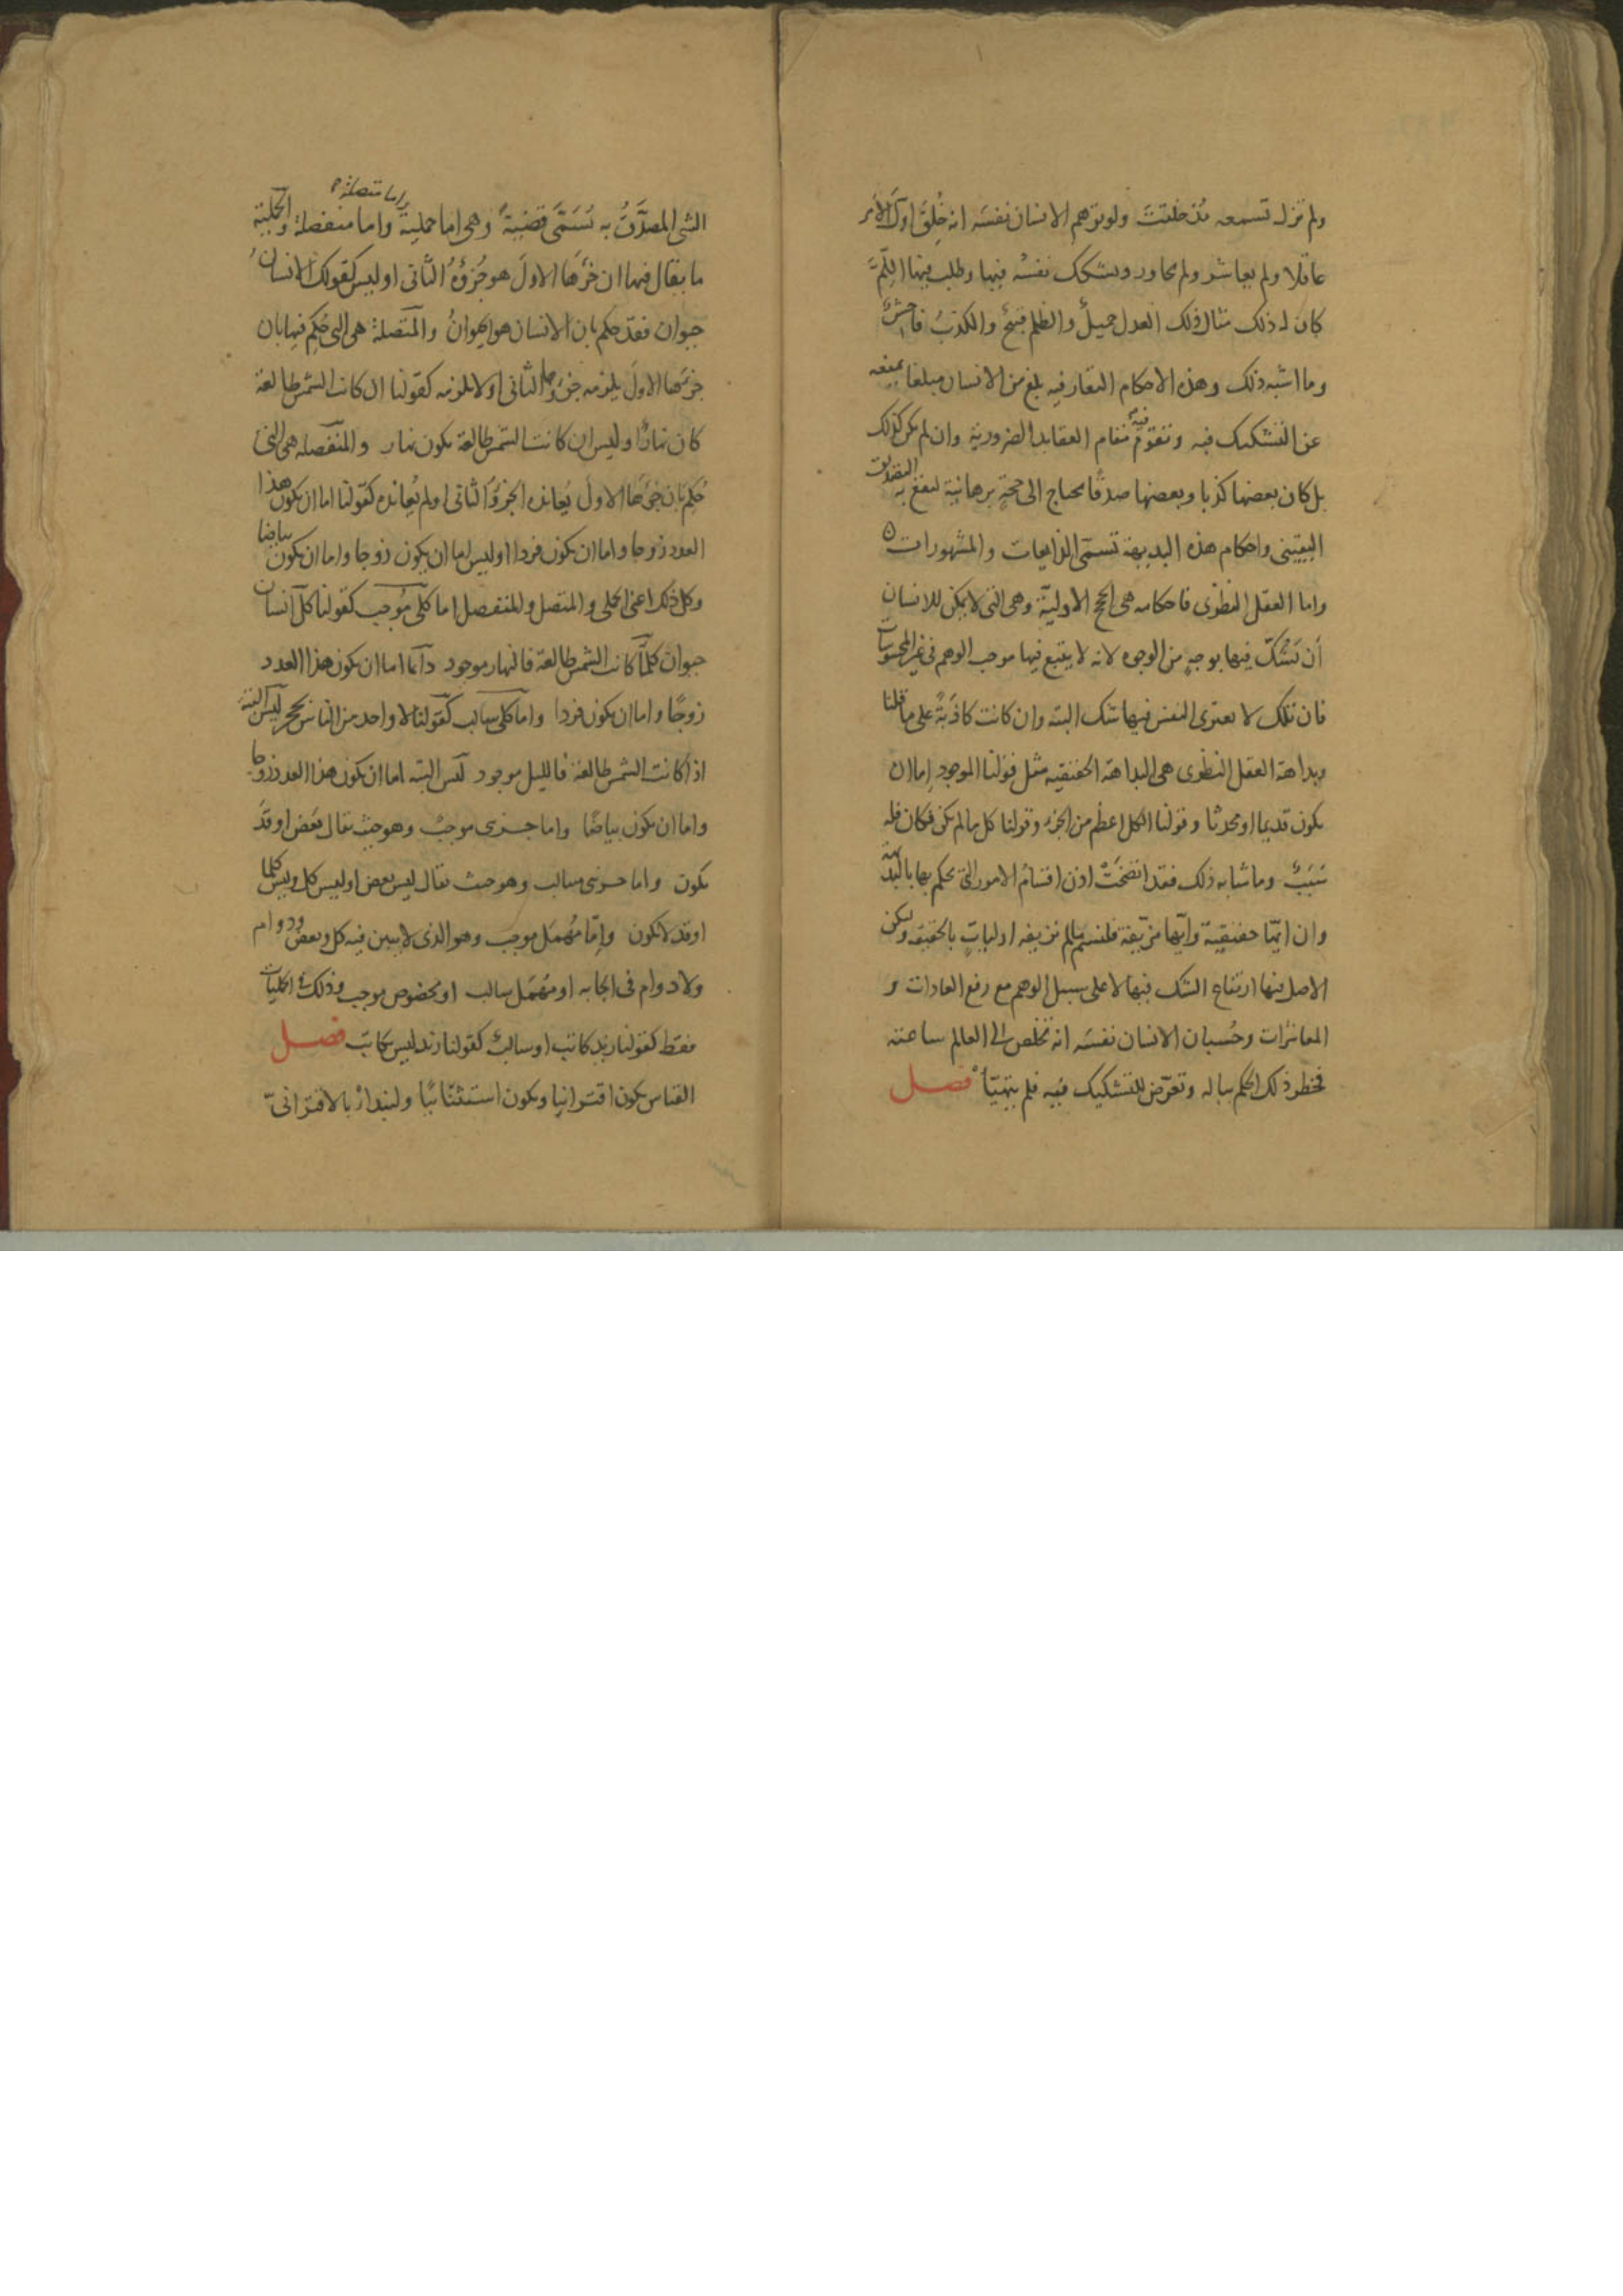 ولم تزل تسمعه مذ خلقت ولو توهم الانسان نفسه انه خُلِقَ اول الامر
عاقلا ولم يعاشر ولم يحاور ويشكك نفسه فيها وطلب فيها اللِمَّ
كان له ذلك مثال ذلك العدل جميلٌ والظلم قبيحٌ والكذبُ فاحشٌ
وما اشبه ذلك وهذه الاحكام التعارفيه بلغ من الانسان مبلغا يمنعه
عن التشكيك فيه وتقوم فيه مقام العقايد الضرورية وان لم يكن كذلك
بل كان بعضها كذبا وبعضها صدقًا محتاج الى حجةٍ برهانية به التصديق
اليقيني واحكام هذه البديهة تسمى الذايعات والمشهورات
واما العقل النظرى فاحكامه هى الحجج الاوليّة وهى التى لا يمكن للانسان
أن تَشُكّ فيها بوجهٍ من الوجوه لانه لا يتبع فيها موجب الوهم فى غير المحسوسات
فان تلك لا يعترى النفس فيها شك البته وان كانت كاذبةً على ما قلنا
وبداهة العقل النظرى هى البداهة الحقيقيه مثل قولنا الموجود إما ان
يكون قديما او محدثا وقولنا الكل اعظم من الجزء وقولنا كل ما لم يكن فكان فله
سَبَبٌ وما شابه ذلك فقد اتضحَتْ اذن اقسامُ الامور التى يحكم بها بالبديهة
وان ايّها حقيقية وايّها مزيّفة فلنسم ما لم نزيفه اولياتٍ بالحقيقه وليكن
الاصل فيها ارتفاع الشك فيها لا على سبيل الوهم مع رفع العادات و
المعاشرات وحُسبان الانسان نفسَه انه تخلص الى العالم ساعته
فخطر ذلك الحكم بباله وتعرّض للتشكيك فيه فلم يتهيّأ فصل
واما متصلة
الشى المصدَّقُ به تُسَمَّى قضيةً وهى اما حملية واما منفصلة والحملية
ما يقال فيها ان جزءَها الاولَ هو جُزؤهُ الثانى او ليس كقولك الانسانُ
حيوان فقد حكم بان الانسان هو الحيوانُ والمتصلة هى التى حُكِم فيها بان
جزءَها الاولَ يلزمه جزؤها الثانى او لا يلزمه كقولنا ان كانت الشمس طالعة
كان نهارًا وليس ان كانت الشمس طالعة يكون نهار والمنفصله هى التى
حُكِمَ بان جزءَها الاولَ يُعانده الجزؤُ الثانى او لم يُعانده كقولنا اما ان يكون هذا
العدد زوجا واما ان يكون فردا او ليس اما ان يكون زوجا واما ان يكون بياضا
وكل ذلك اعنى الحملى والمتصل والمنفصل اما كلى مُوجب كقولنا كل انسان
حيوان كلما كانت الشمس طالعة فالنهار موجود دآئما اما ان يكون هذا العدد
زوجًا واما ان يكون فردا واما كلى سالب كقولنا لا واحد من الناس بحجر ليس البتة
اذا كانت الشمس طالعة فالليل موجود ليس البته اما ان يكون هذا العدد زوجا
واما ان يكون بياضًا واما جزىى موجبٌ وهو حيث يقال بَعض او قدَ
يكون واما جزىى سالب وهو حيث يقال ليس بعض او ليس كل وليس كلما
او قد لا يكون وإمّا مُهمَل موجب وهو الذى لا يبين فيه كل وبعض ودوام
ولا دوام فى ايجابه او مُهمَل سالب او مخصوص موجب وذلك فى الحمليات
فقط كقولنا زيد كاتب او سالبٌ كقولنا زيد ليس بكاتب فصل
القياس يكون اقترانيا ويكون استثنائيًا ولنبدأْ بالاقترانىّ